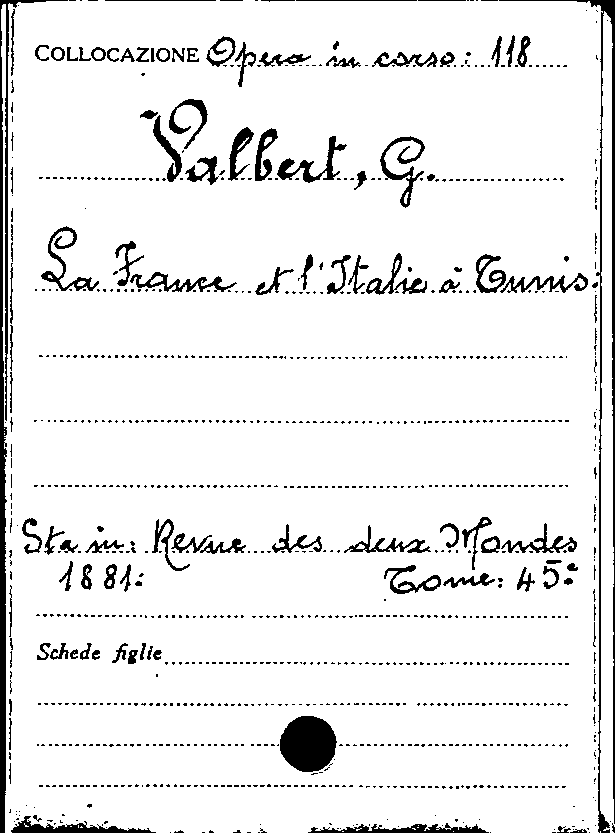 COLLOCAZIONE Opera in corso: 118
Valbert, G.
La France et l'Italie à Tunis:
Sta in: Revue des deux Mondes
1881: Tome: 45º
Schede figlie